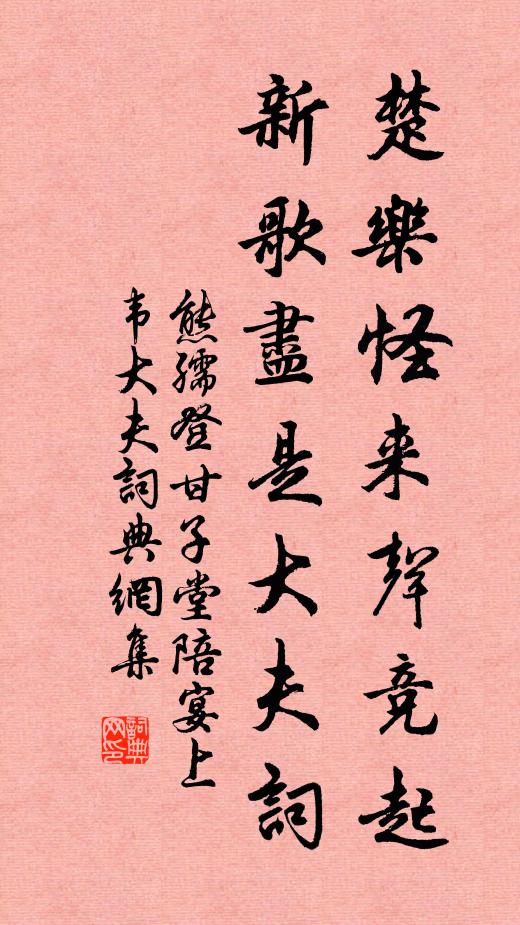 楚樂怪来聲竞起
新歌盡是大夫詞
熊孺登甘子堂陪宴上
韦大夫詞典網集
詞典网印